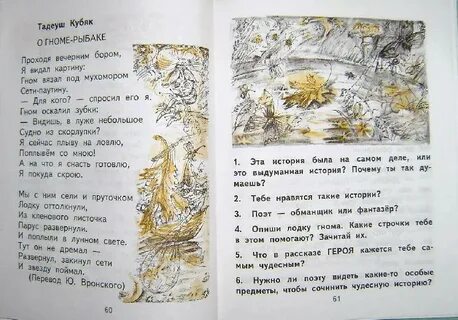 Тадеуш Кубяк
О ГНОМЕ-РЫБАКЕ
Проходя вечерним бором,
Я видал картину:
Гном вязал под мухомором
Сети-паутину.
— Для кого? — спросил его я.
Гном оскалил зубки:
— Видишь, в луже небольшое
Судно из скорлупки?
Я сейчас плыву на ловлю,
Поплывём со мною!
А на что я снасть готовлю,
Я покуда скрою.
Мы с ним сели и пруточком
Лодку оттолкнули,
Из кленового листочка
Парус развернули.
И поплыли в лунном свете.
Тут он не дремал —
Развернул, закинул сети
И звезду поймал.
(Перевод Ю. Вронского)
60
1. Эта история была на самом деле, или
это выдуманная история? Почему ты так ду-
маешь?
2. Тебе нравятся такие истории?
3. Поэт — обманщик или фантазёр?
4. Опиши лодку гнома. Какие строчки тебе
в этом помогают? Зачитай их.
5. Что в рассказе ГЕРОЯ кажется тебе са-
мым чудесным?
6. Нужно ли поэту видеть какие-то особые
предметы, чтобы сочинить чудесную историю?
61